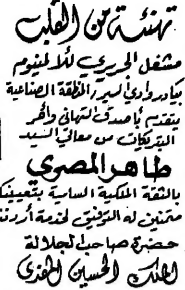 تهنئة من القلب
مشغل الحريري للالمنيوم
بكادر وادي لسير المنطقة الصناعية
يتقدم بأصدق التهاني وأحر
التبريكات من معالي السيد
طاهر المصري
بالثقة الملكية السامية بتعيينكم
متمنين له التوفيق لخدمة أردننا
حضرة صاحب الجلالة
الملك الحسين المفدى